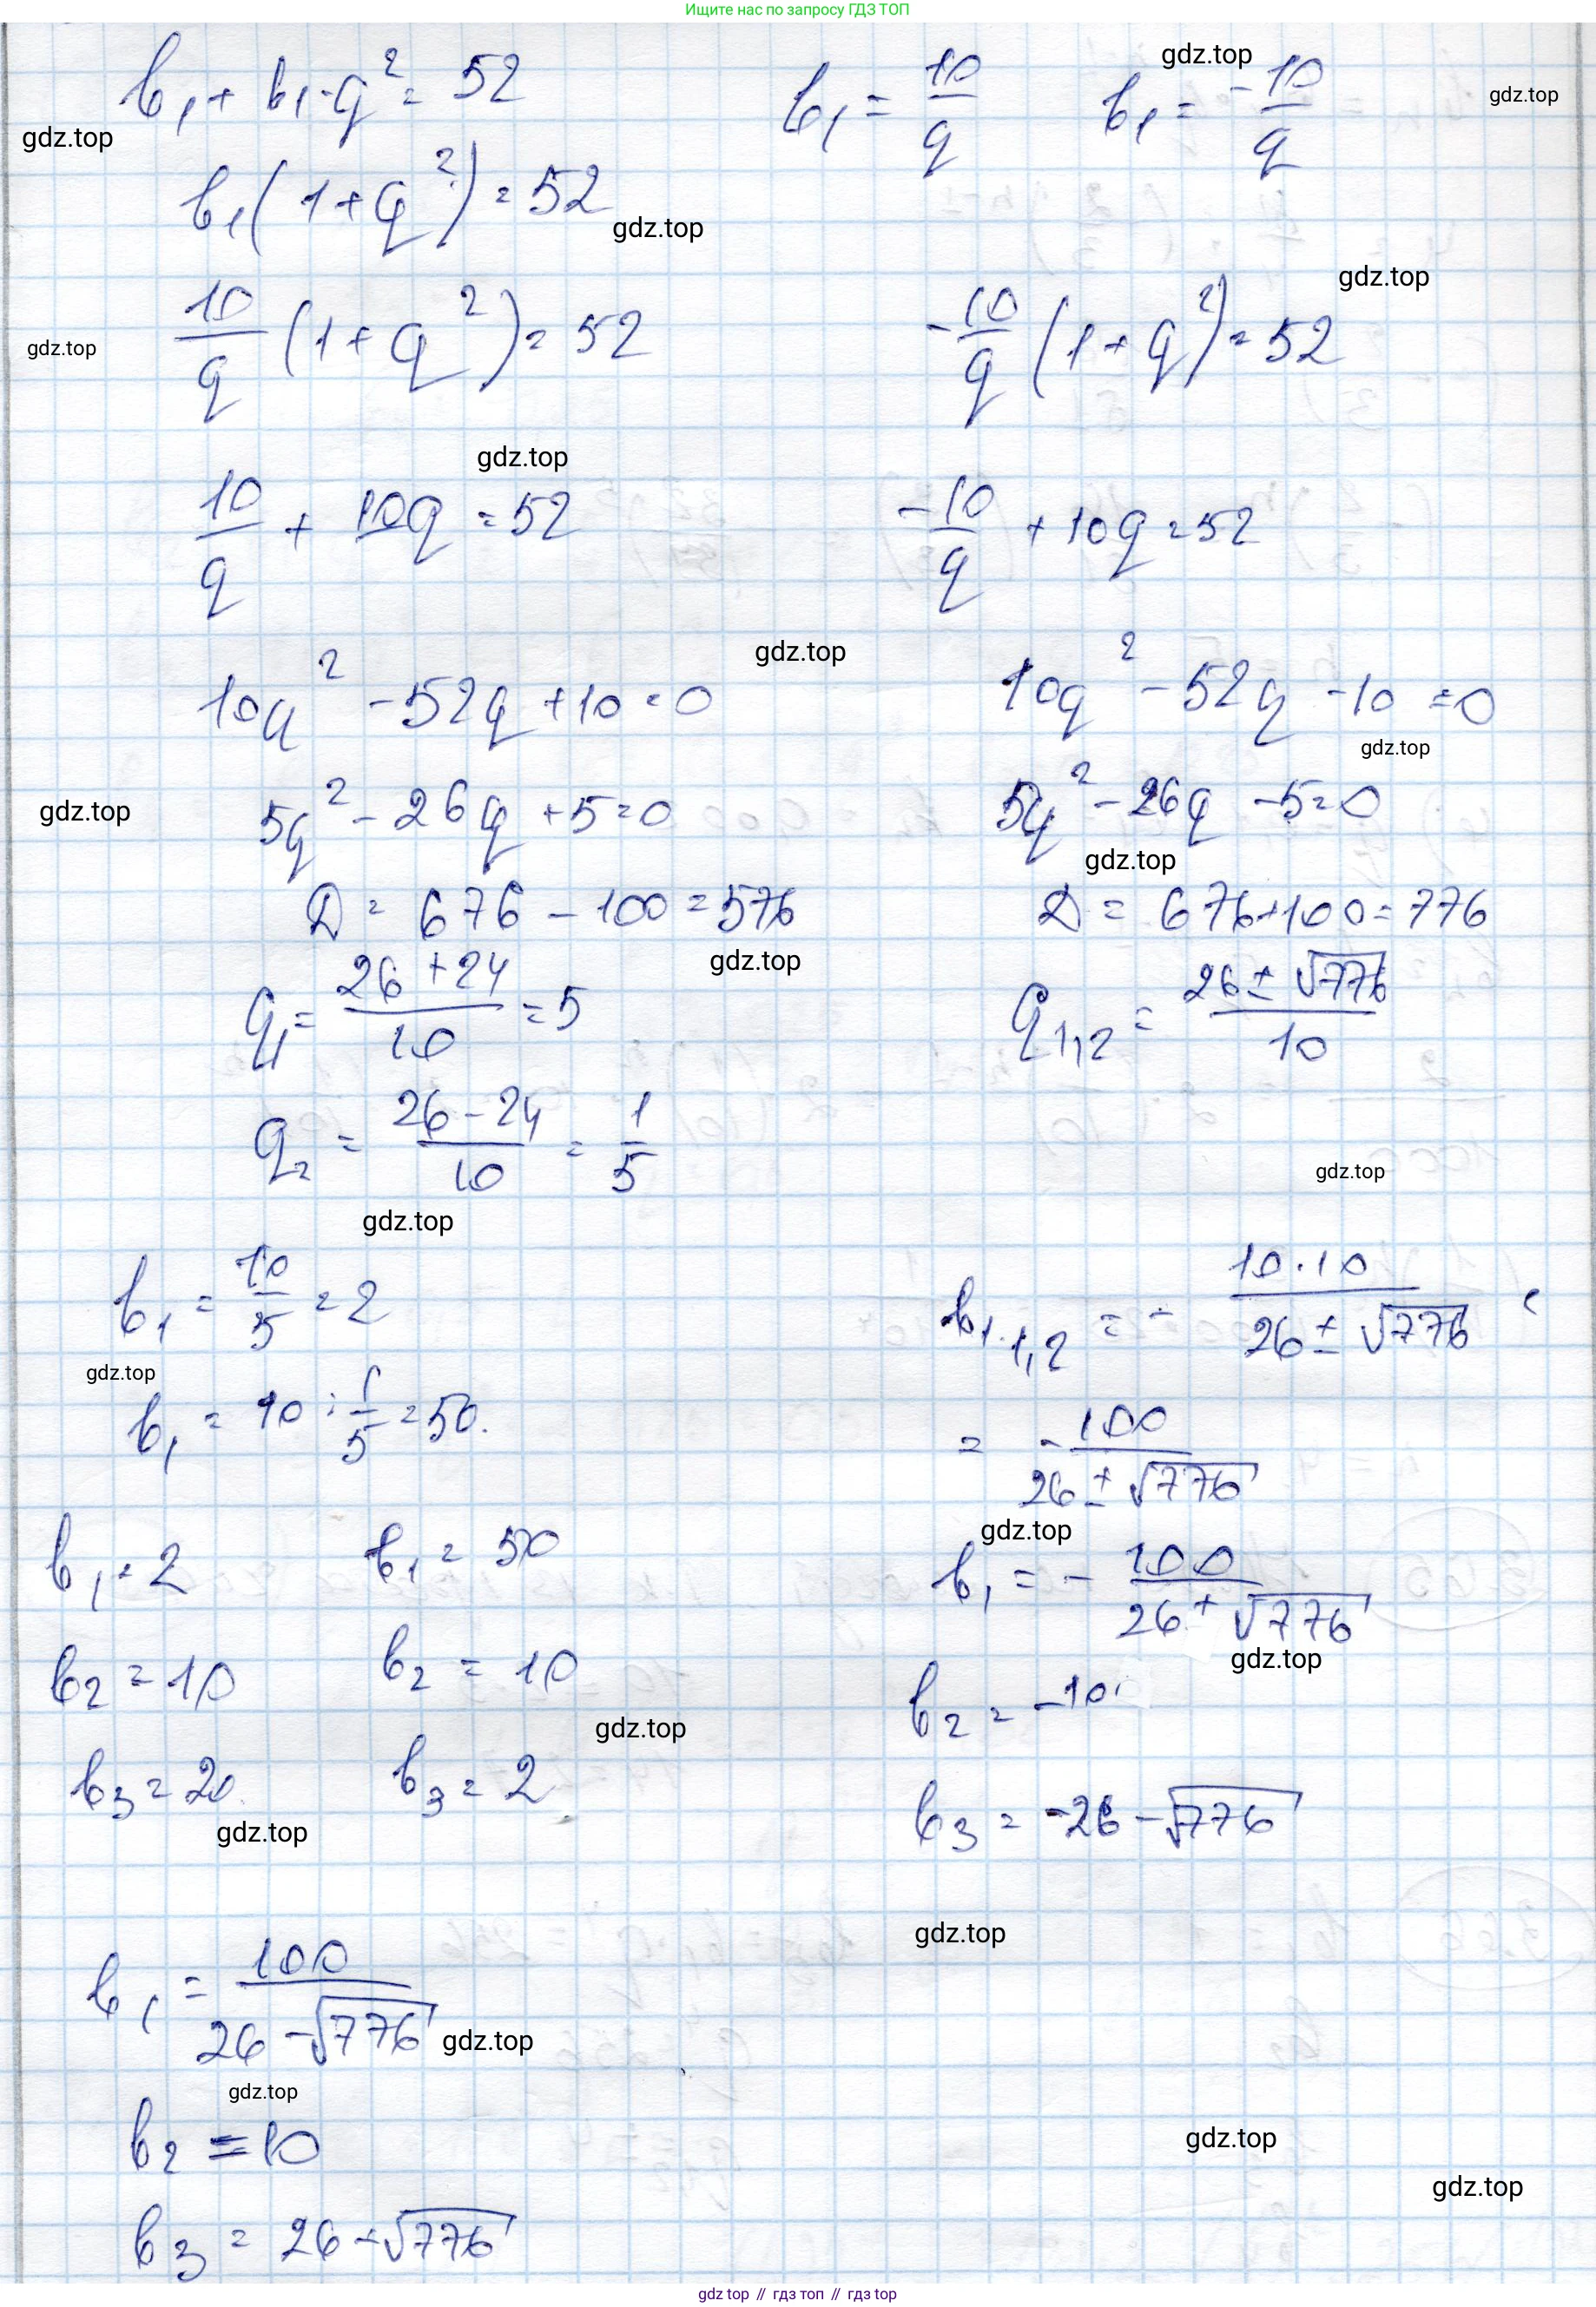 Ищите нас по запросу ГДЗ ТОП
b₁ + b₁·q² = 52
b₁ = 10/q
b₁ = -10/q
gdz.top
gdz.top
gdz.top
b₁(1+q²) = 52
gdz.top
gdz.top
10/q (1+q²) = 52
-10/q (1+q²) = 52
gdz.top
gdz.top
10/q + 10q = 52
-10/q + 10q = 52
gdz.top
10q² - 52q + 10 = 0
10q² - 52q - 10 = 0
gdz.top
gdz.top
5q² - 26q + 5 = 0
5q² - 26q - 5 = 0
gdz.top
D = 676 - 100 = 576
D = 676+100 = 776
gdz.top
q₁ = (26+24)/10 = 5
q₁,₂ = (26 ± √776)/10
q₂ = (26-24)/10 = 1/5
gdz.top
gdz.top
b₁ = 10/5 = 2
b₁ ₁,₂ = - 10·10/(26 ± √776) =
gdz.top
b₁ = 10 : 1/5 = 50.
= -100/(26 ± √776)
gdz.top
b₁ = 2
b₁ = 50
b₁ = - 100/(26 + √776)
gdz.top
b₂ = 10
b₂ = 10
b₂ = -10
gdz.top
b₃ = 20
b₃ = 2
b₃ = -26 - √776
gdz.top
gdz.top
b₁ = 100/(26 - √776)
gdz.top
gdz.top
b₂ = 10
gdz.top
gdz.top
b₃ = 26 + √776
gdz top // гдз топ // гдз top